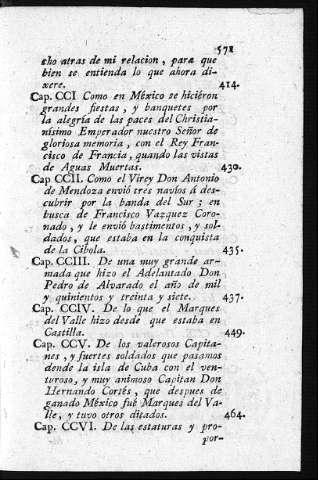 571
cho atras de mi relacion, para que
bien se entienda lo que ahora di-
xere. 414.
Cap. CCI Como en México se hiciéron
grandes fiestas, y banquetes por
la alegría de las paces del Christia-
nísimo Emperador nuestro Señor de
gloriosa memoria, con el Rey Fran-
cisco de Francia, quando las vistas
de Aguas Muertas. 430.
Cap. CCII. Como el Virey Don Antonio
de Mendoza envió tres navíos á des-
cubrir por la banda del Sur; en
busca de Francisco Vazquez Coro-
nado, y le envió bastimentos, y sol-
dados, que estaba en la conquista
de la Cibola. 435.
Cap. CCIII. De una muy grande ar-
mada que hizo el Adelantado Don
Pedro de Alvarado el año de mil
y quinientos y treinta y siete. 437.
Cap. CCIV. De lo que el Marques
del Valle hizo desde que estaba en
Castilla. 449.
Cap. CCV. De los valerosos Capita-
nes, y fuertes soldados que pasamos
dende la isla de Cuba con el ven-
turoso, y muy animoso Capitan Don
Hernando Cortés, que despues de
ganado México fué Marques del Va-
lle, y tuvo otros ditados. 464.
Cap. CCVI. De las estaturas y pro-
por-